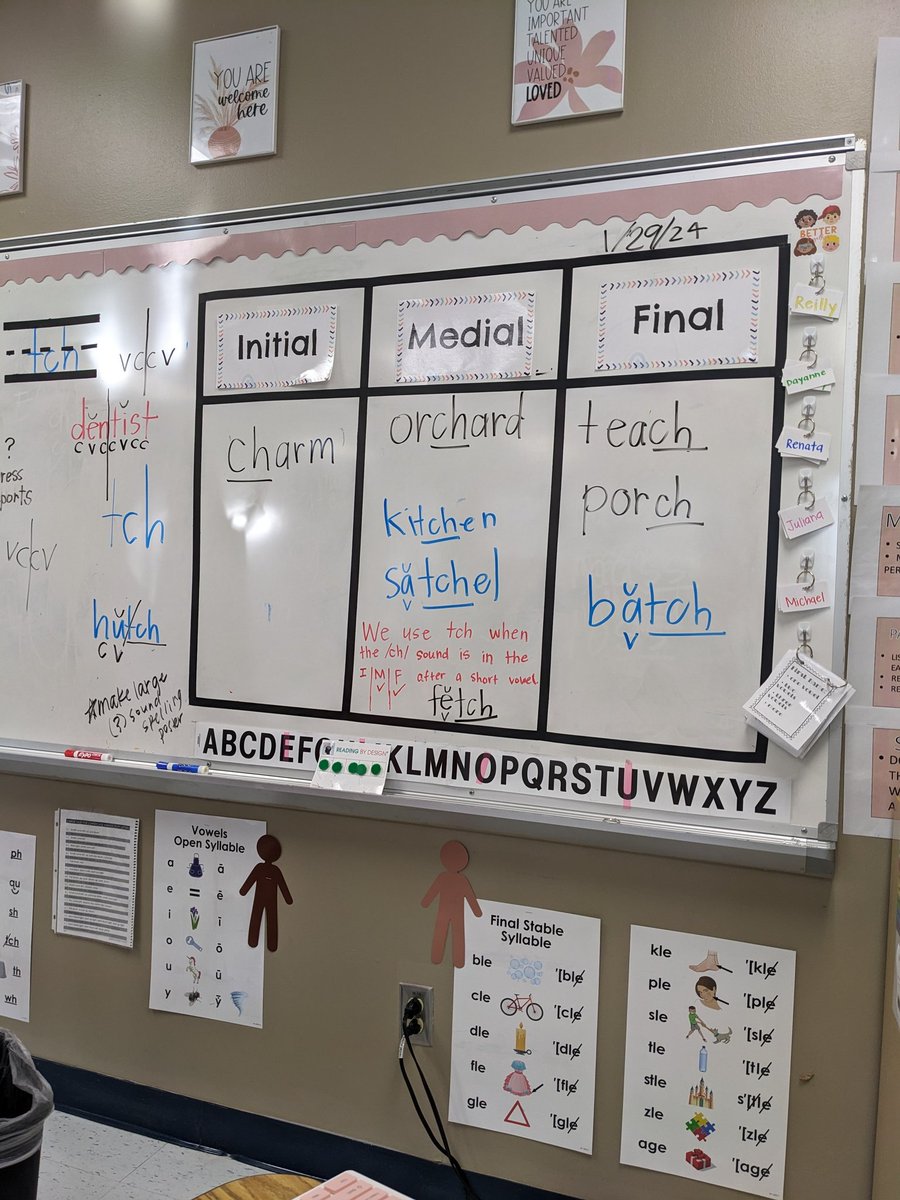 YOU ARE
welcome
here
YOU ARE
IMPORTANT
TALENTED
UNIQUE
VALUED
LOVED
1/29/24
BETTER
Initial
Medial
Final
charm
orchard
kitchen
sătchel
We use tch when
the /ch/ sound is in the
I|M|F after a short vowel.
fĕtch
teach
porch
bătch
tch
vc|cv
dĕntĭst
cvccvcc
tch
?
ress
ports
vc|cv
hŭtch
cv
*make large
(?) sound
spelling
poster
Reilly
Dayanne
Renata
Juliana
Michael
ABCDEFG
READING BY DESIGN
KLMNOPQRSTUVWXYZ
EXPO
EXPO
ph
qu
sh
tch
th
wh
Vowels
Open Syllable
a ā
e = ē
i ī
o ō
u ū
y ȳ
Final Stable
Syllable
ble '[ble
cle '[cle
dle '[dle
fle '[fle
gle '[gle
kle '[kle
ple '[ple
sle '[sle
tle '[tle
stle s'[tle
zle '[zle
age '[age